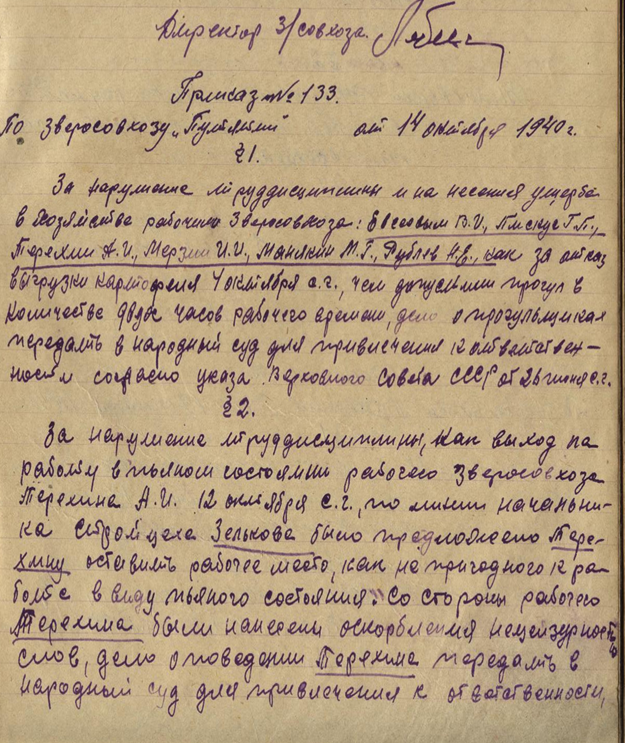 Директор з/совхоза.
Приказ № 133.
По зверосовхозу „Путятин" от 14 октября 1940 г.
§ 1.
За нарушение труддисциплины и на несения ущерба
в хозяйстве рабочими Зверосовхоза: Евсеевым В.И., Пискус Г.П.,
Терехин А.И., Мерзин И.И., Манякин М.Г., Рублев Н.Е., как за отказ
выгрузки картофеля 4 октября с.г., чем допустили прогул в
количестве двух часов рабочего времени, дело о прогульщиках
передать в народный суд для привлечения к ответствен-
ности согласно указа Верховного Совета СССР от 26 июня с.г.
§ 2.
За нарушение труддисциплины, как выход на
работу в пьяном состоянии рабочего Зверосовхоза
Терехина А.И. 12 октября с.г., по линии начальни-
ка стройцеха Зелькова было предложено Тере-
хину оставить рабочее место, как не пригодного к ра-
боте в виду пьяного состояния. Со стороны рабочего
Терехина были нанесены оскорбления нецензурност
слов, дело о поведении Терехина передать в
народный суд для привлечения к ответственности,